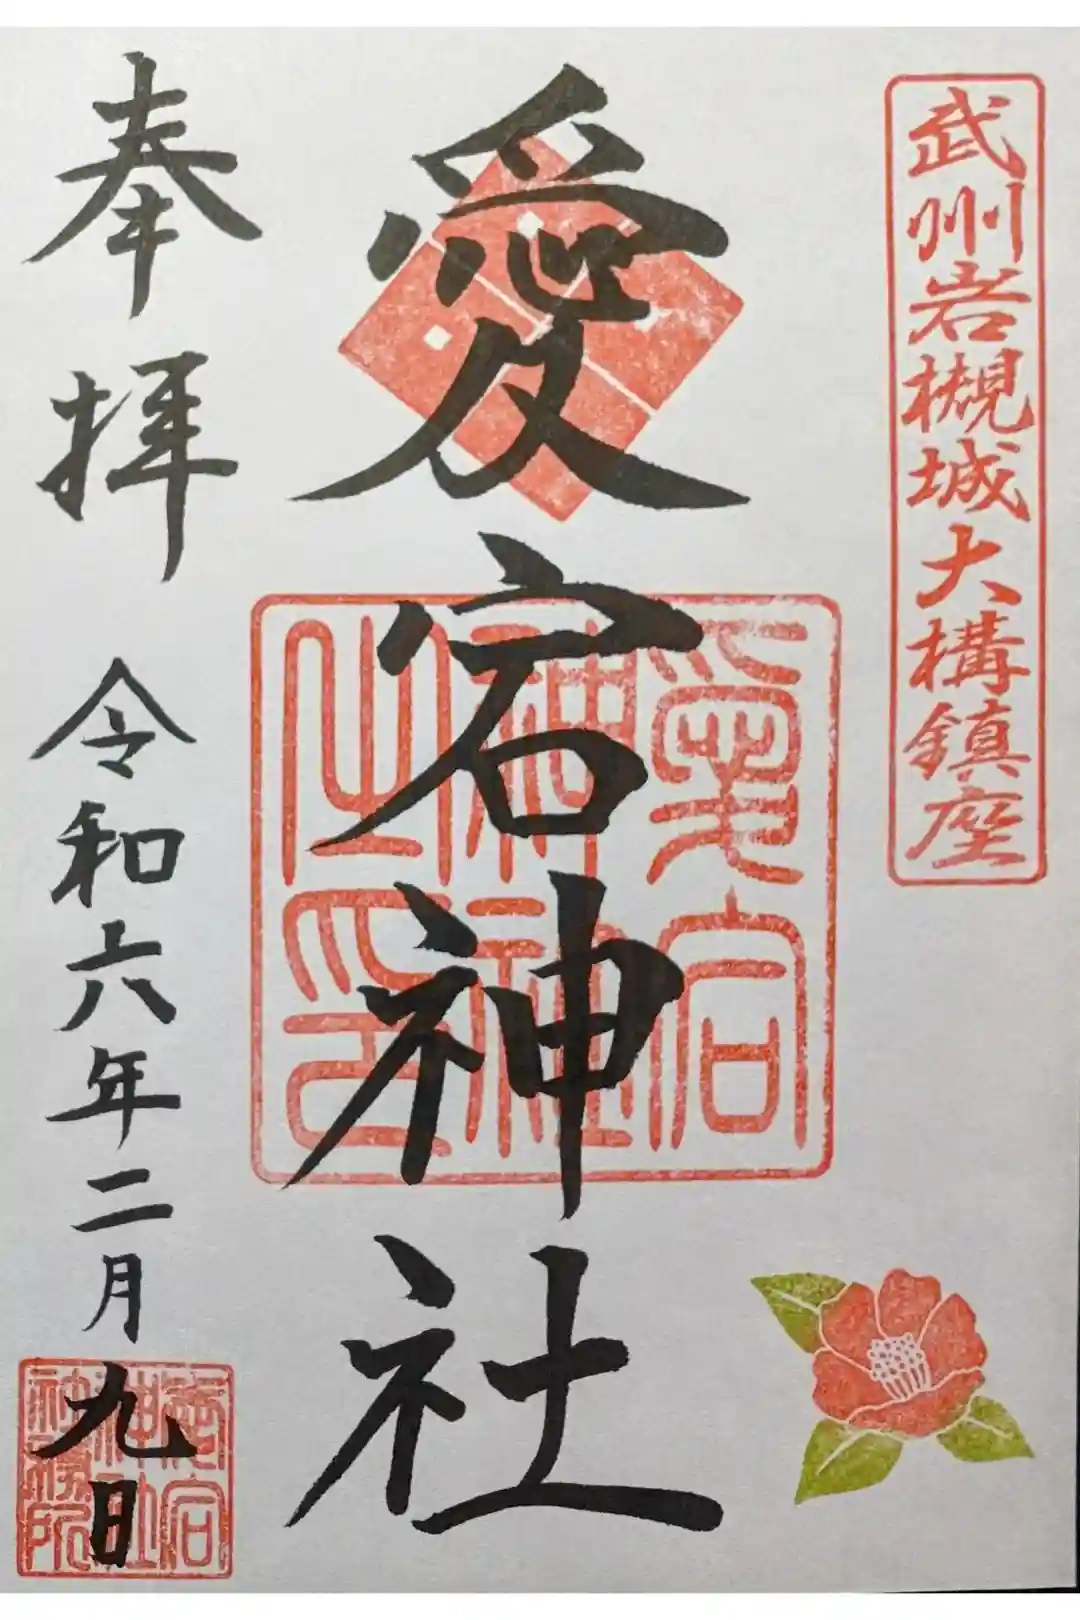 武州岩槻城大構鎮座
愛宕神社
愛宕
神社
之印
奉拝
令和六年二月九日
愛宕
神社
社務所